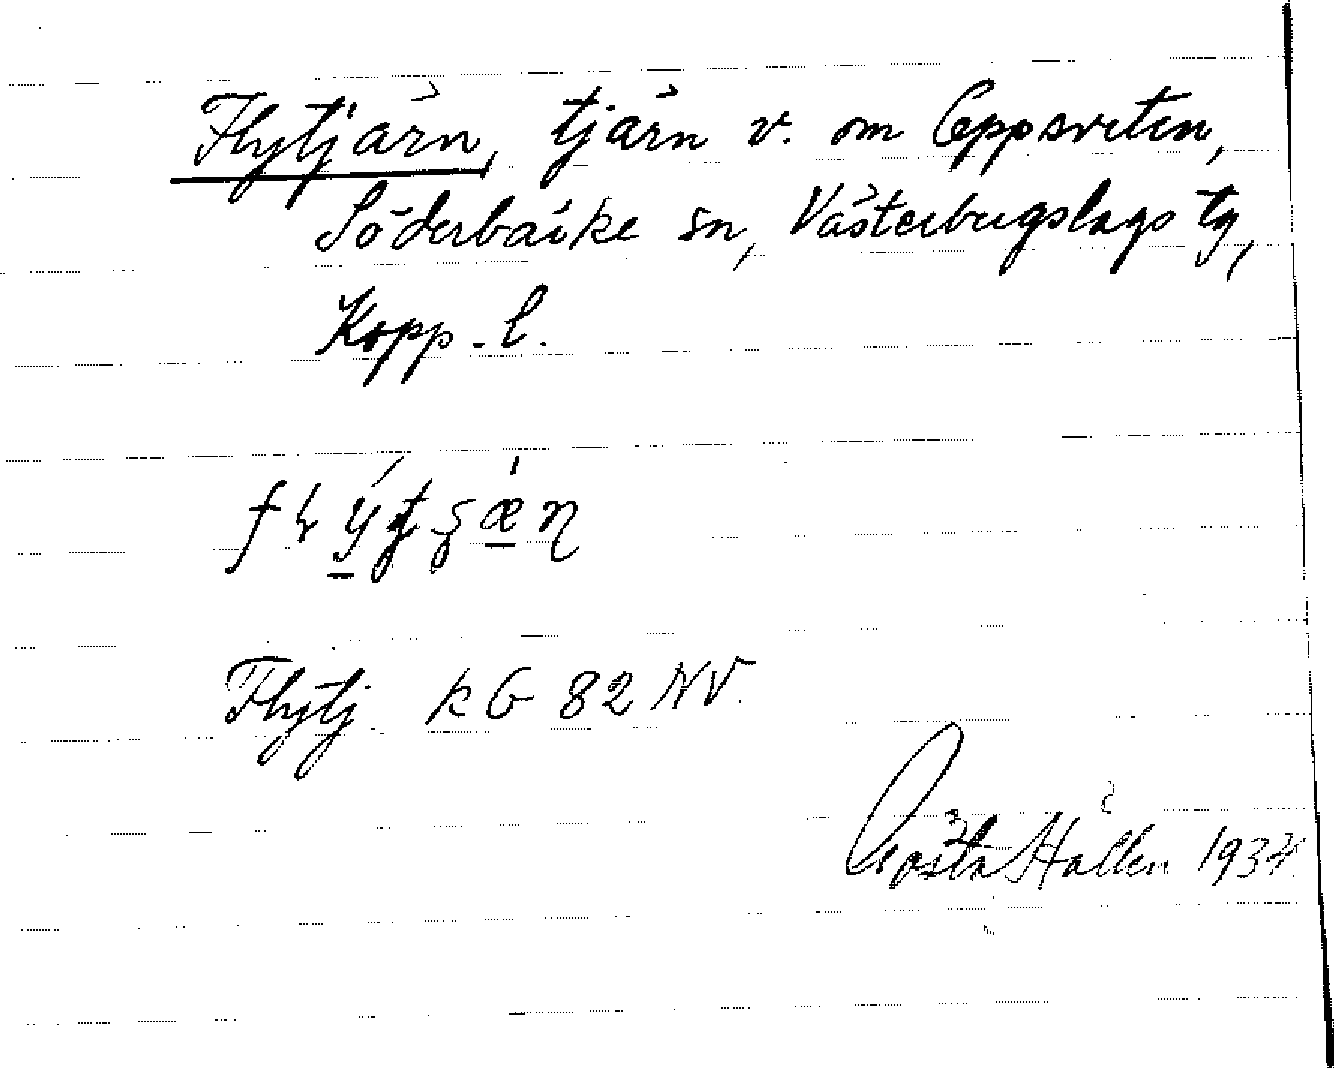 Flytjärn, tjärn v. om Eppsveten,
Söderbärke sn, Västerbergslags tg,
Kopp. l.
Flytj kG 82 NV.
Gösta Hallén 1934.